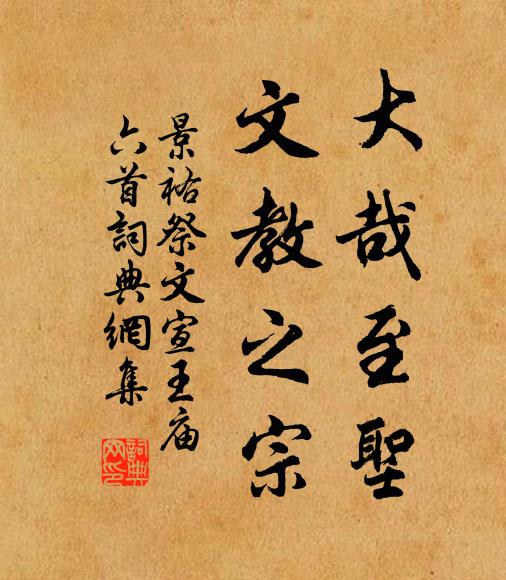 大哉至聖
文教之宗
景祐祭文宣王庙
六首詞典網集
詞典
网印